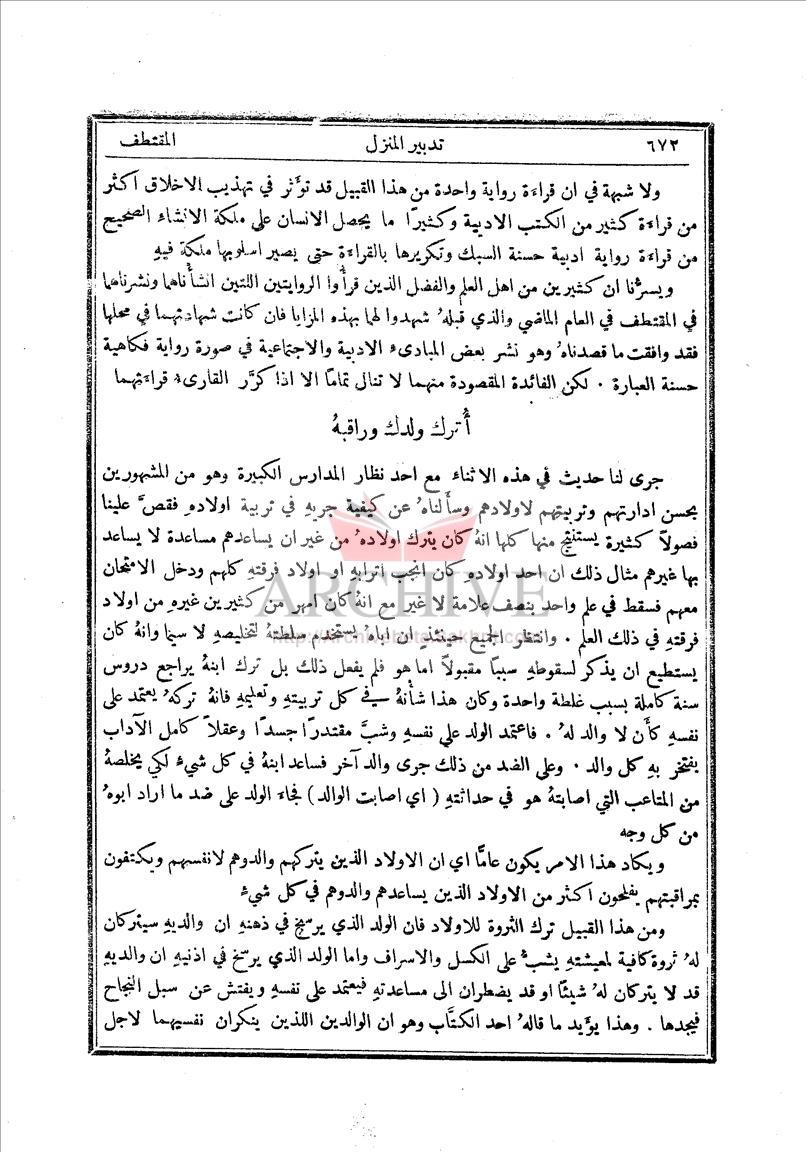 ٦٧٢ تدبير المنزل المقتطف
ولا شبهة في ان قراءة رواية واحدة من هذا القبيل قد تؤثر في تهذيب الاخلاق اكثر
من قراءة كثير من الكتب الادبية وكثيرًا ما يحصل الانسان على ملكة الانشاء الصحيح
من قراءة رواية ادبية حسنة السبك وتكريرها بالقراءة حتى يصير اسلوبها ملكة فيهِ
ويسرُّنا ان كثيرين من اهل العلم والفضل الذين قرأُوا الروايتين اللتين انشأناهما ونشرناهما
في المقتطف في العام الماضي والذي قبلهُ شهدوا لهما بهذه المزايا فان كانت شهادتهما في محلها
فقد وافقت ما قصدناهُ وهو نشر بعض المبادىء الادبية والاجتماعية في صورة رواية فكاهية
حسنة العبارة . لكن الفائدة المقصودة منهما لا تنال تمامًا الا اذا كرَّر القارىء قراءتهما
أُترك ولدك وراقبهُ
جرى لنا حديث في هذه الاثناء مع احد نظار المدارس الكبيرة وهو من المشهورين
بحسن ادارتهم وتربيتهم لاولادهم وسألناهُ عن كيفية جريهِ في تربية اولادهِ فقصَّ علينا
فصولاً كثيرة يستنتج منها كلها انهُ كان يترك اولادهُ من غير ان يساعدهم مساعدة لا يساعد
بها غيرهم مثال ذلك ان احد اولادهِ كان انجب اترابهِ او اولاد فرقتهِ كلهم ودخل الامتحان
معهم فسقط في علم واحد بنصف علامة لا غير مع انهُ كان امهر من كثيرين غيرهِ من اولاد
فرقتهِ في ذلك العلم . وانتظر الجميع حينئذٍ ان اباهُ يستخدم سلطتهُ لتخليصهِ لا سيما وانهُ كان
يستطيع ان يذكر لسقوطهِ سببًا مقبولاً اما هو فلم يفعل ذلك بل ترك ابنهُ يراجع دروس
سنة كاملة بسبب غلطة واحدة وكان هذا شأنهُ في كل تربيتهِ وتعليمهِ فانهُ تركهُ يعتمد على
نفسهِ كأن لا والد لهُ . فاعتمد الولد على نفسهِ وشبَّ مقتدرًا جسدًا وعقلاً كامل الآداب
يفتخر بهِ كل والد . وعلى الضد من ذلك جرى والد آخر فساعد ابنهُ في كل شيءٍ لكي يخلصهُ
من المتاعب التي اصابتهُ هو في حداثتهِ ( اي اصابت الوالد ) فجاء الولد على ضد ما اراد ابوهُ
من كل وجه
ويكاد هذا الامر يكون عامًّا اي ان الاولاد الذين يتركهم والدوهم لانفسهم ويكتفون
بمراقبتهم يفلحون اكثر من الاولاد الذين يساعدهم والدوهم في كل شيءٍ
ومن هذا القبيل ترك الثروة للاولاد فان الولد الذي يرسخ في ذهنهِ ان والديهِ سيتركان
لهُ ثروة كافية لمعيشتهِ يشبُّ على الكسل والاسراف واما الولد الذي يرسخ في اذنيهِ ان والديهِ
قد لا يتركان لهُ شيئًا او قد يضطران الى مساعدتهِ فيعتمد على نفسهِ ويفتش عن سبل النجاح
فيجدها . وهذا يؤيد ما قالهُ احد الكتَّاب وهو ان الوالدين اللذين ينكران نفسيهما لاجل
ARCHIVE